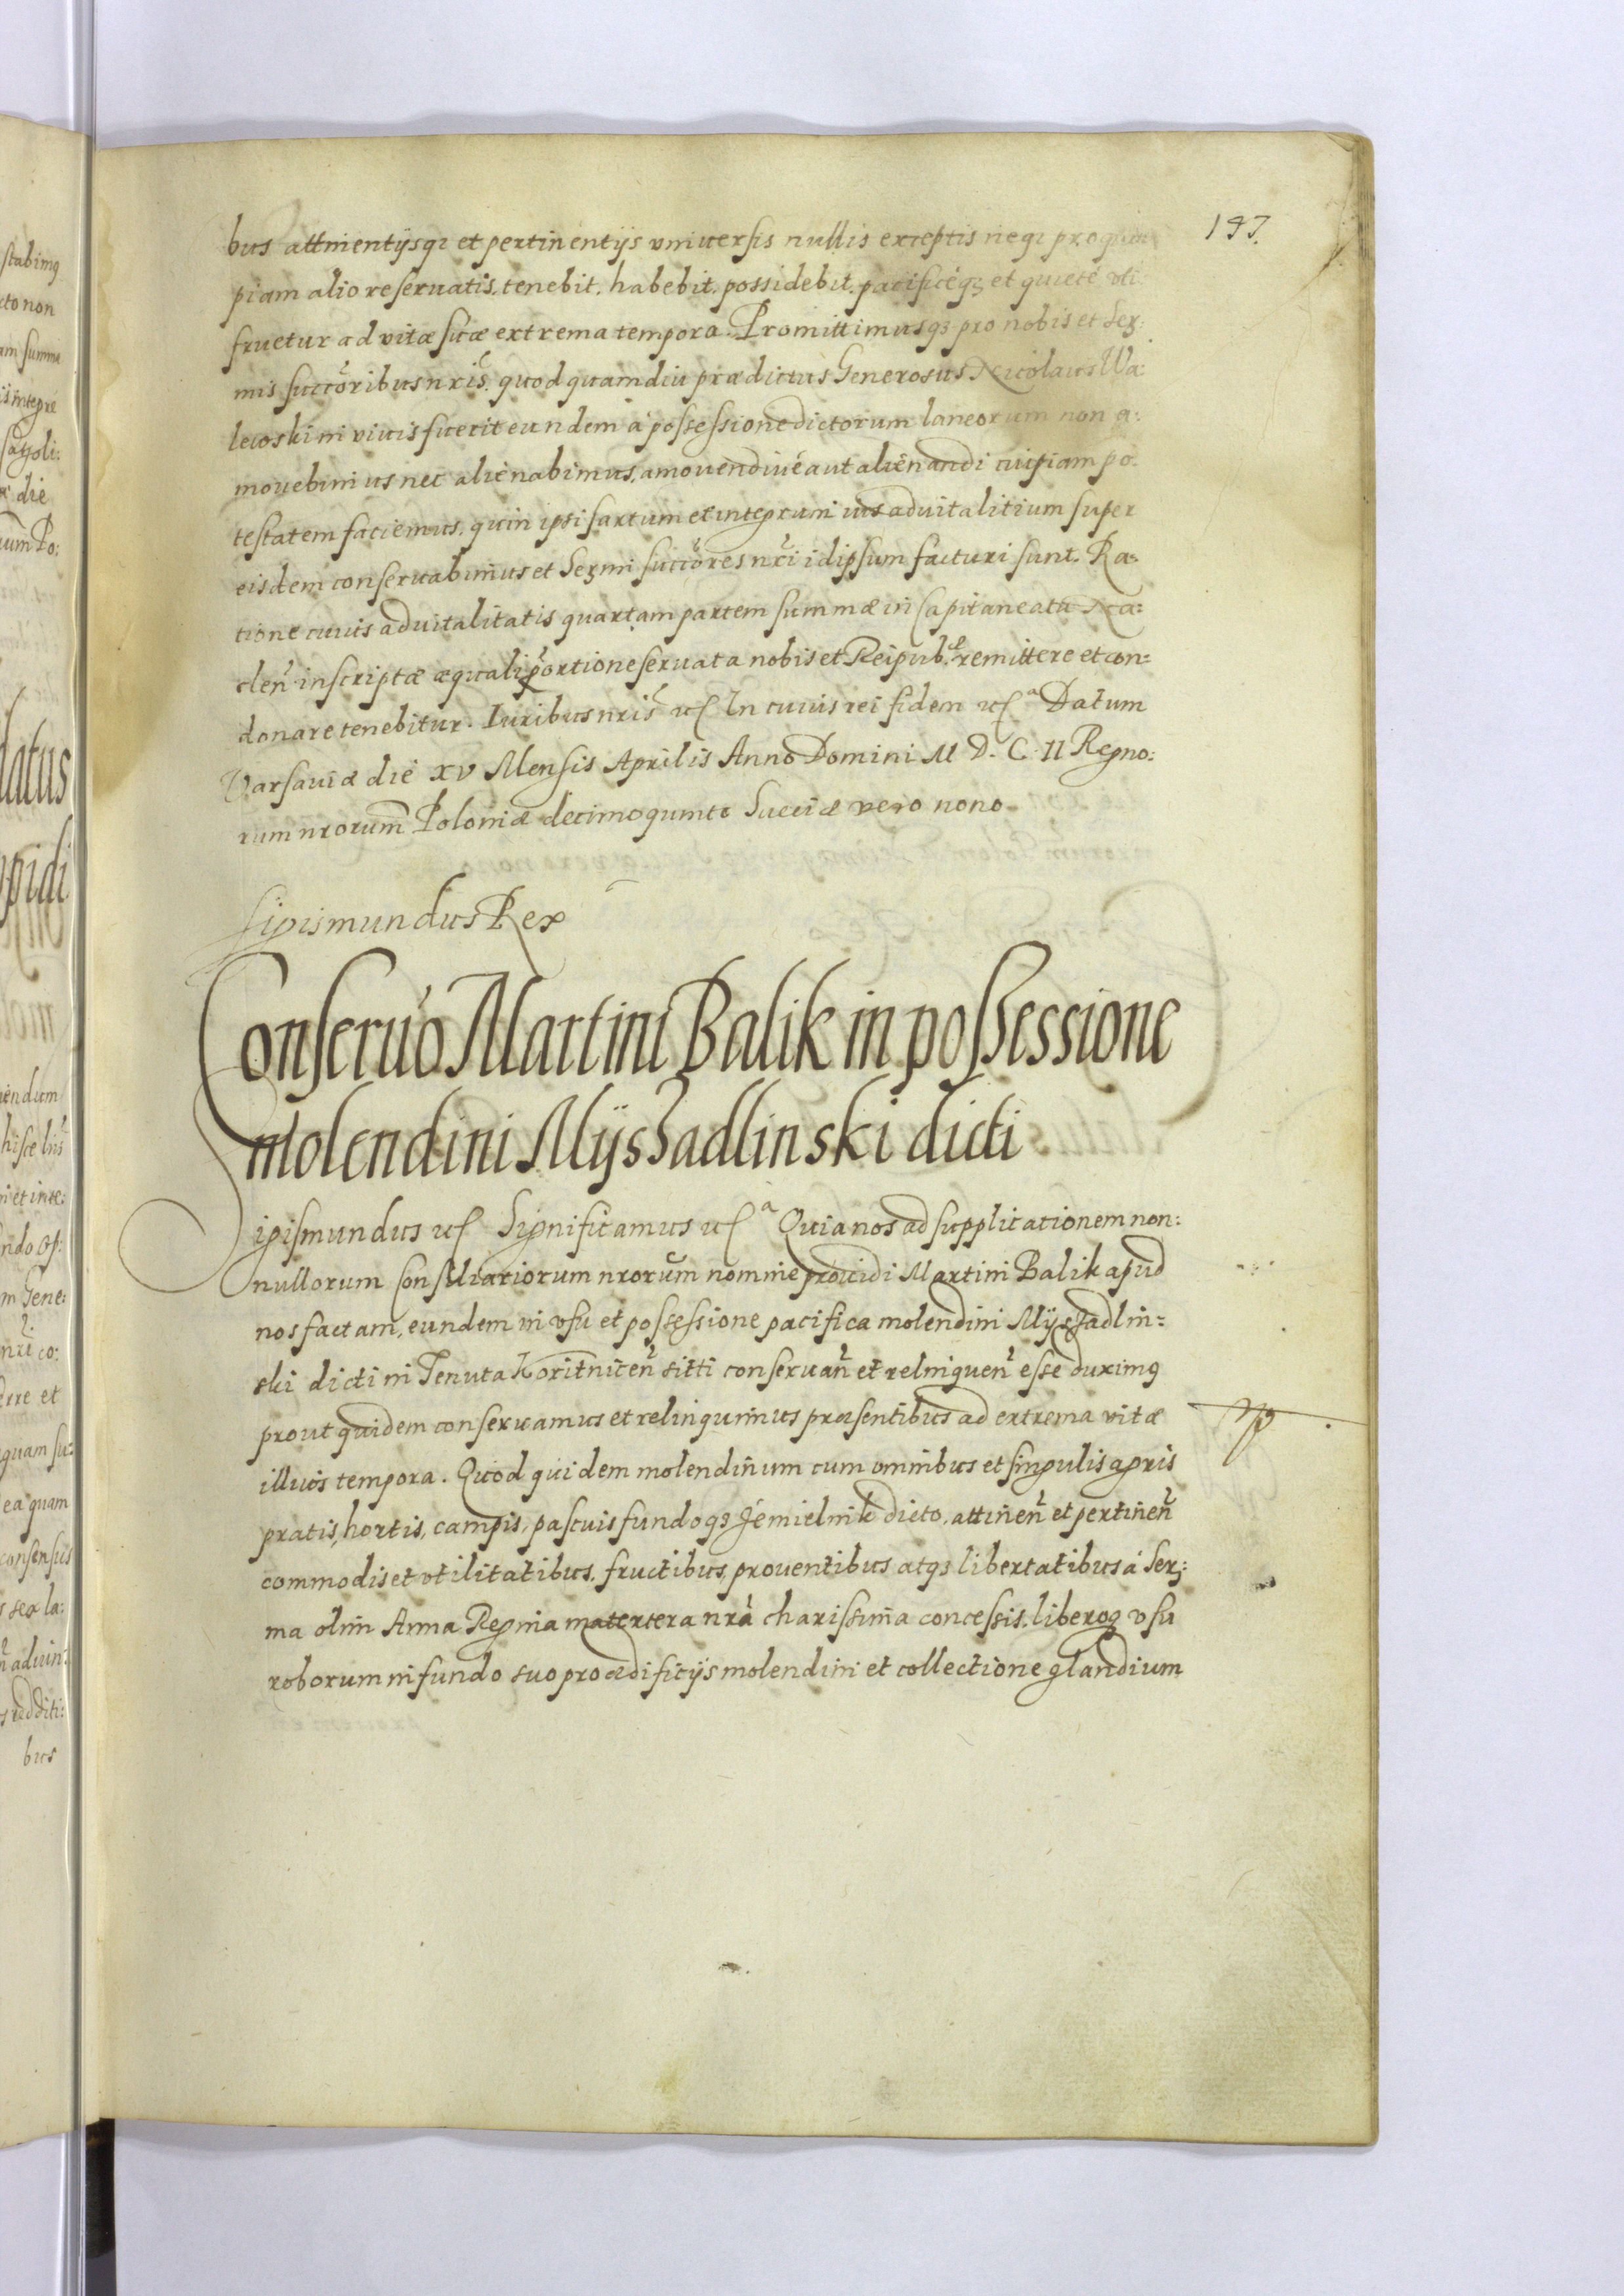 197.
bus attinentijsq₃ et pertinentijs vniuersis nullis exceptis neq₃ pro quem
piam alio reseruatis, tenebit, habebit, possidebit, pacificéq₃ et quieté vti
fruetur ad vitæ suæ extrema tempora. Promittimusq₃ pro nobis et Ser:
mis succõribus nris̃, quod quamdiu prædictus Generosus Nicolaus Wa:
lewski in viuis fuerit eundem á possessione dictorum laneorum non a:
mouebimus nec alienabimus, amouendiué aut alienandi cuipiam po:
testatem faciemus, quin ipsi sartum et integrum ius aduitalitium super
eisdem conseruabimus et Sermi succõres nri̾ idipsum facturi sunt. Ra:
tione cuius aduitalitatis quartam partem summæ in Capitaneatu Ra:
den̾ inscriptæ æquali portione seruata nobis et Reipub.æ remittere et con:
donare tenebitur. Iuribus nris̃ etc̃ In cuius rei fidem etc̃ᵃ Datum
Varsauiæ die XV Mensis Aprilis Anno Domini M D. C. II Regno:
rum nrorum̃ Poloniæ decimoquinto Sueciæ vero nono
Sigismundus Rex
Conseruõ Martini Balik in possessione
molendini Mijszadlinski dicti
Sigismundus etc̃ Significamus etc̃ᵃ Quia nos ad supplicationem non:
nullorum Consiliariorum nrorum̃ nomine prouidi Martini Balik apud
nos factam, eundem in vsu et possessione pacifica molendini Mijszadlin:
ski dicti in Tenuta Koritnicen̾ sitti conseruan̾ et relinquen̾ esse duximꝰ
prout quidem conseruamus et relinquimus præsentibus ad extrema vitæ
illius tempora. Quod quidem molendinum cum omnibus et singulis agris
pratis, hortis, campis, pascuis fundoq₃ Jemielnik dicto, attinen̾ et pertinen̾
commodis et vtilitatibus, fructibus, prouentibus atq₃ libertatibus á Ser:
ma olim Anna Regina matertera nrã charissima concessis, liberoq₃ vsu
roborum in fundo suo pro ædificijs molendini et collectione glandium